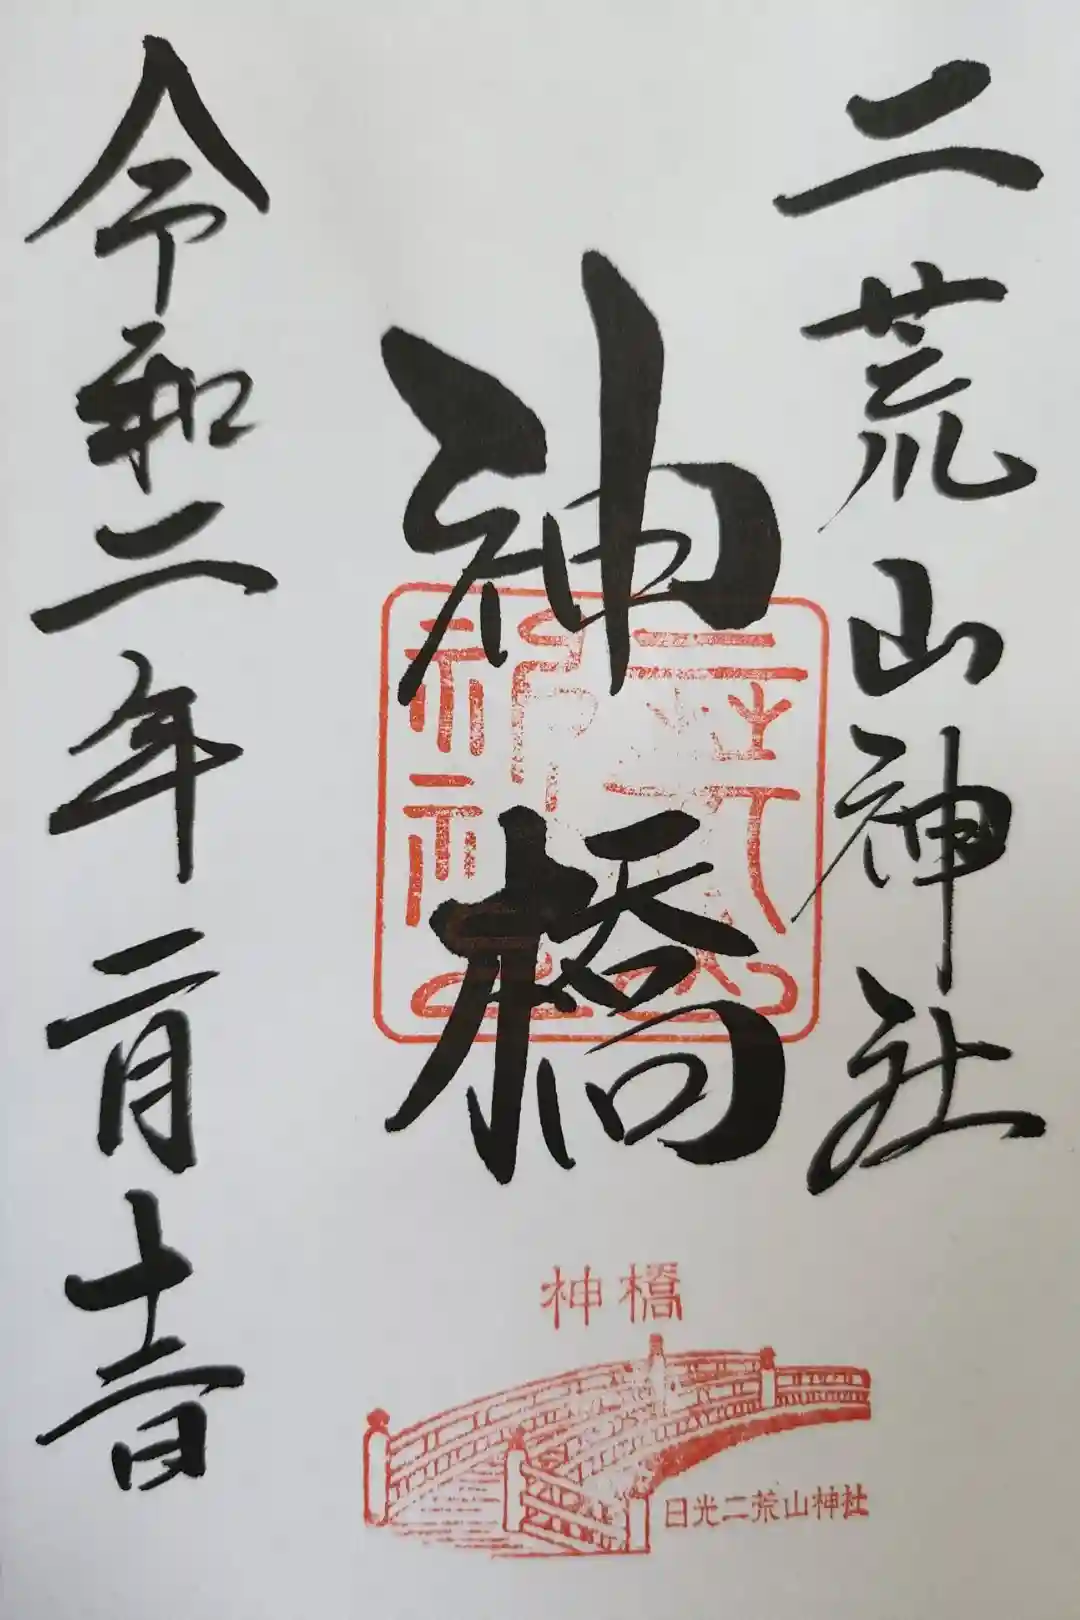 二荒山神社
神橋
令和二年二月十二日
神橋
日光二荒山神社